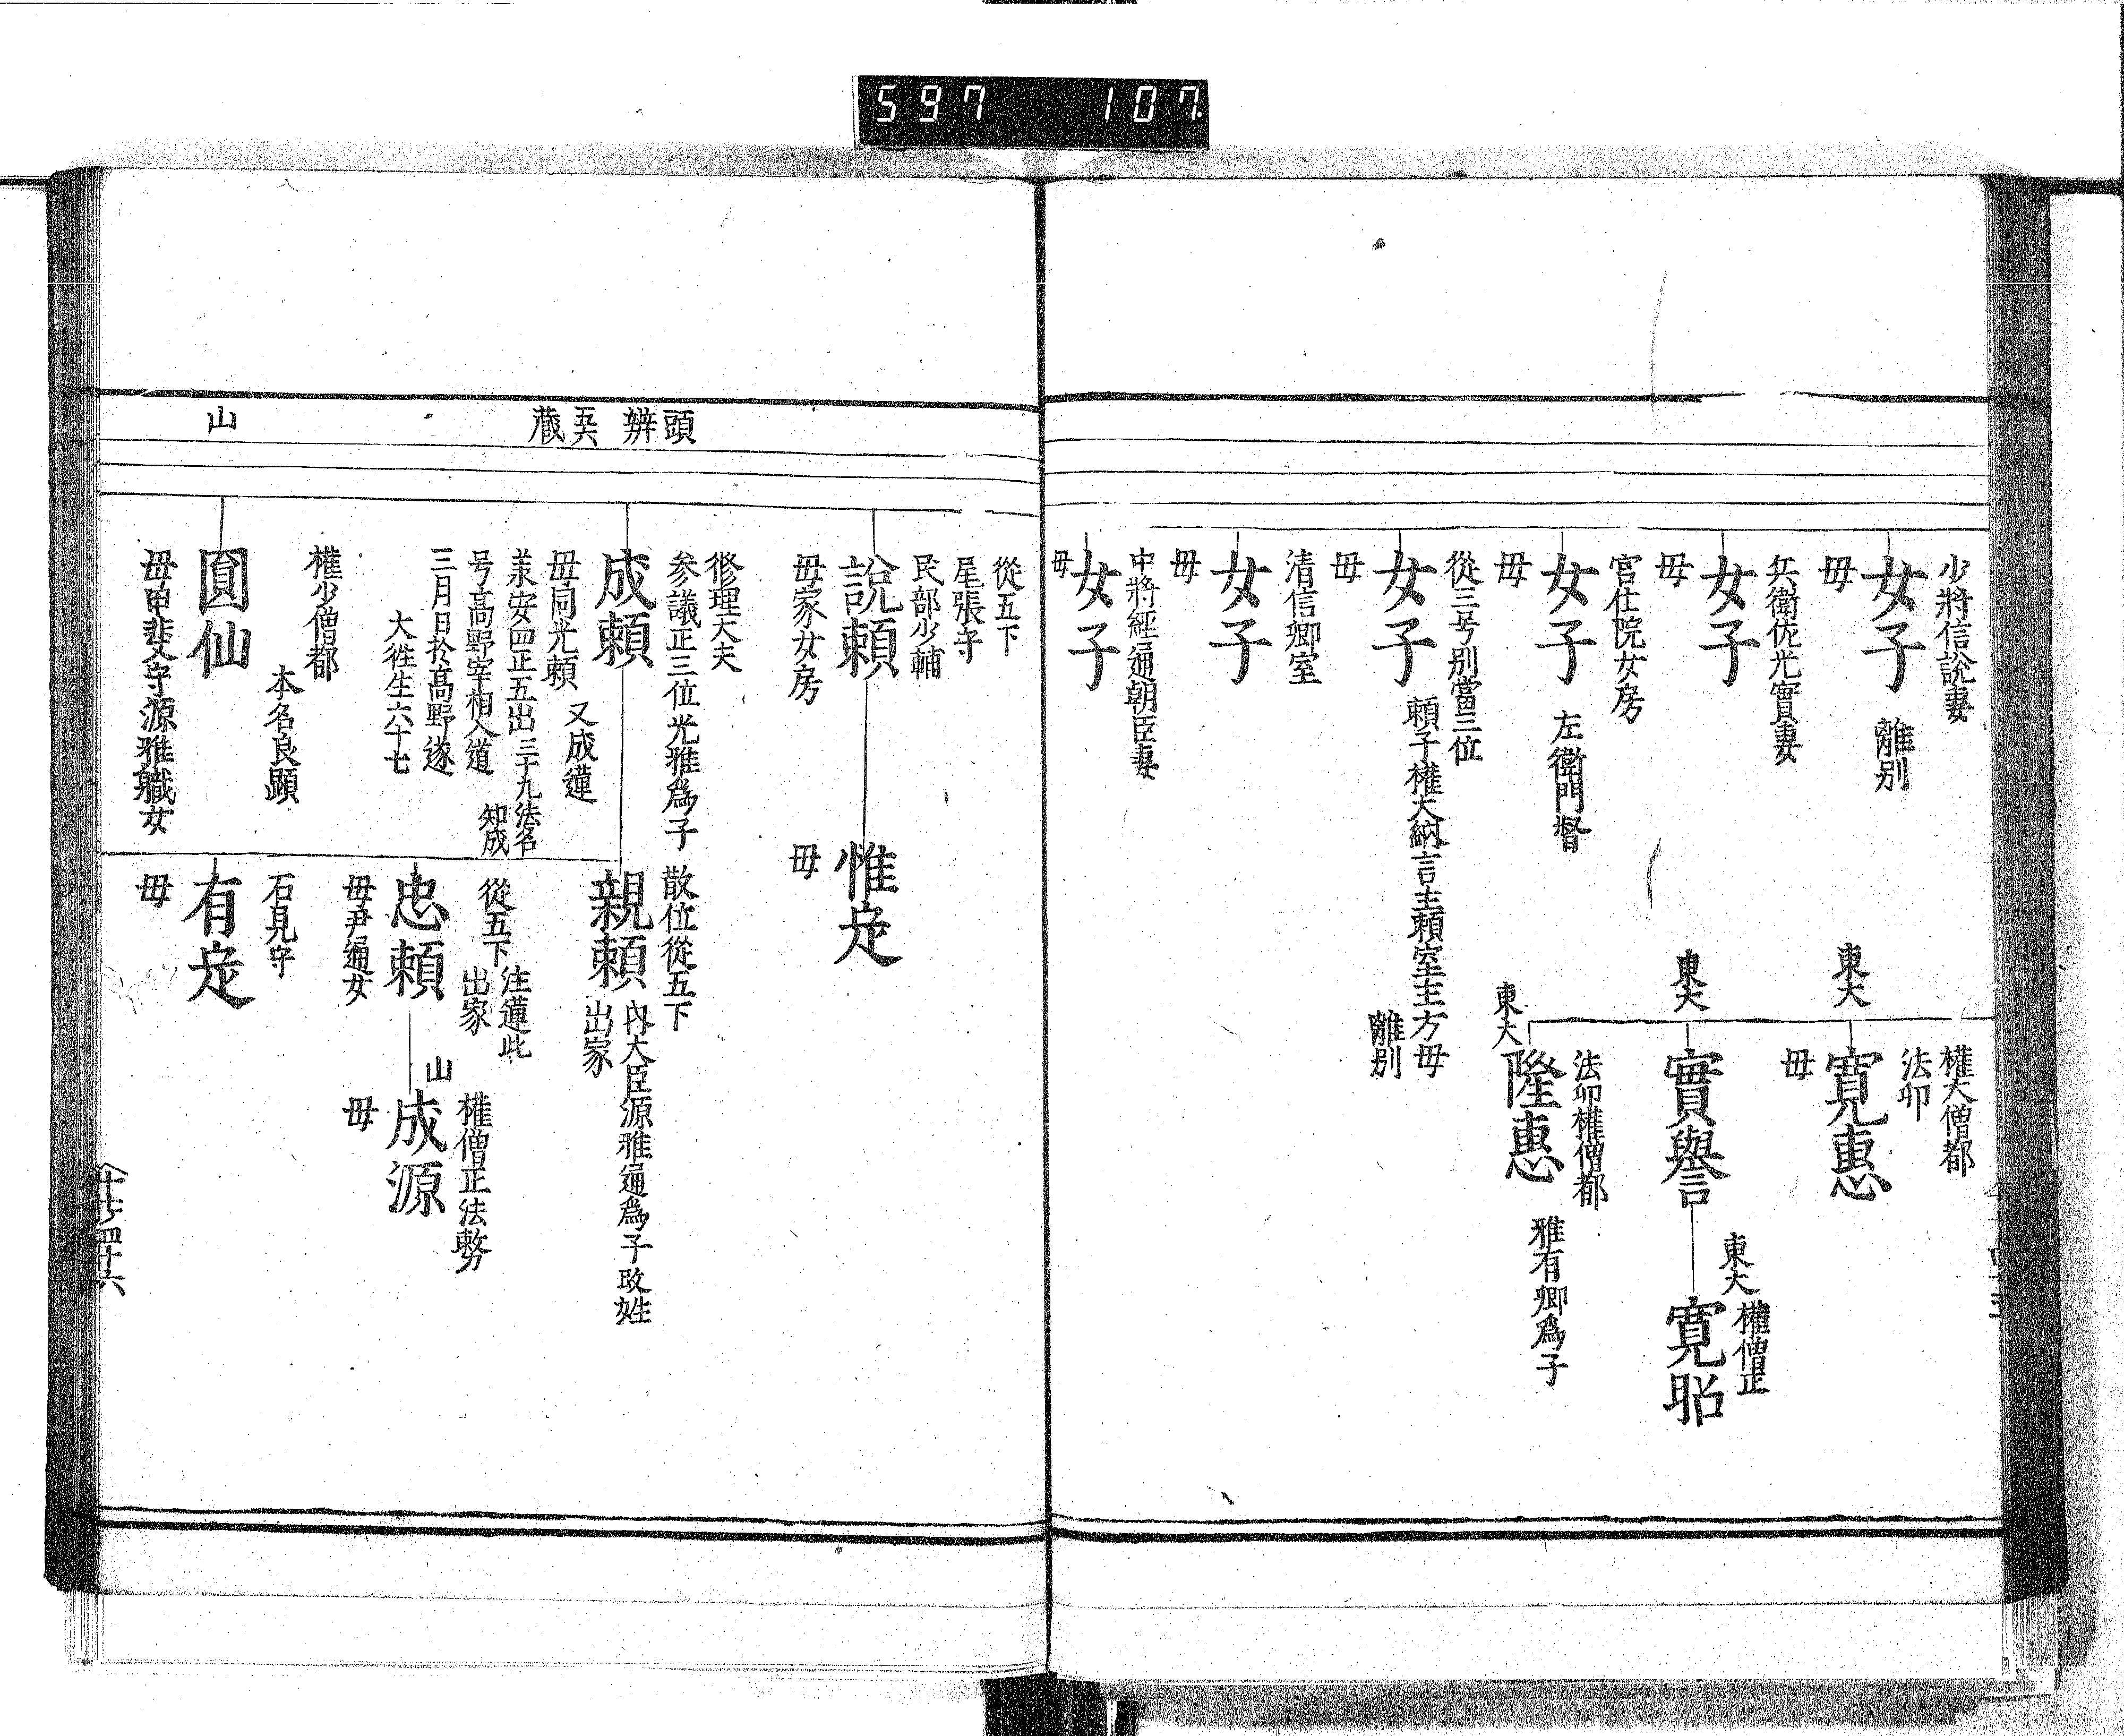 597 107
少將信說妻
女子
離别
毋
兵衛佐光實妻
女子
毋
宮仕院女房
女子
左衛門督
毋
從三号別當三位
女子
頼子權大納言主頼室主方毋
離别
毋
清信卿室
女子
毋
中將經通朝臣妻
女子
毋
權大僧都
法卬
東大
寛惠
毋
東大
實譽
東大
權僧正
寛昭
法卬權僧都
東大
隆惠
雅有卿爲子
頭
辨
蔵
山
從五下
尾張守
民部少輔
說頼
毋家女房
惟㝎
毋
修理大夫
参議正三位光雅爲子
成頼
毋同光頼
又成蓮
兼安四正五出三十九法名
知成
号髙野宰相入道
三月日於髙野遂
大徃生六十七
散位從五下
親頼
内大臣源雅通爲子改姓
出家
從五下
注蓮此
出家
忠頼
毋尹通女
山
權僧正法務
成源
毋
石見守
有㝎
毋
權少僧都
本名良顕
圓仙
毋甲斐守源雅職女